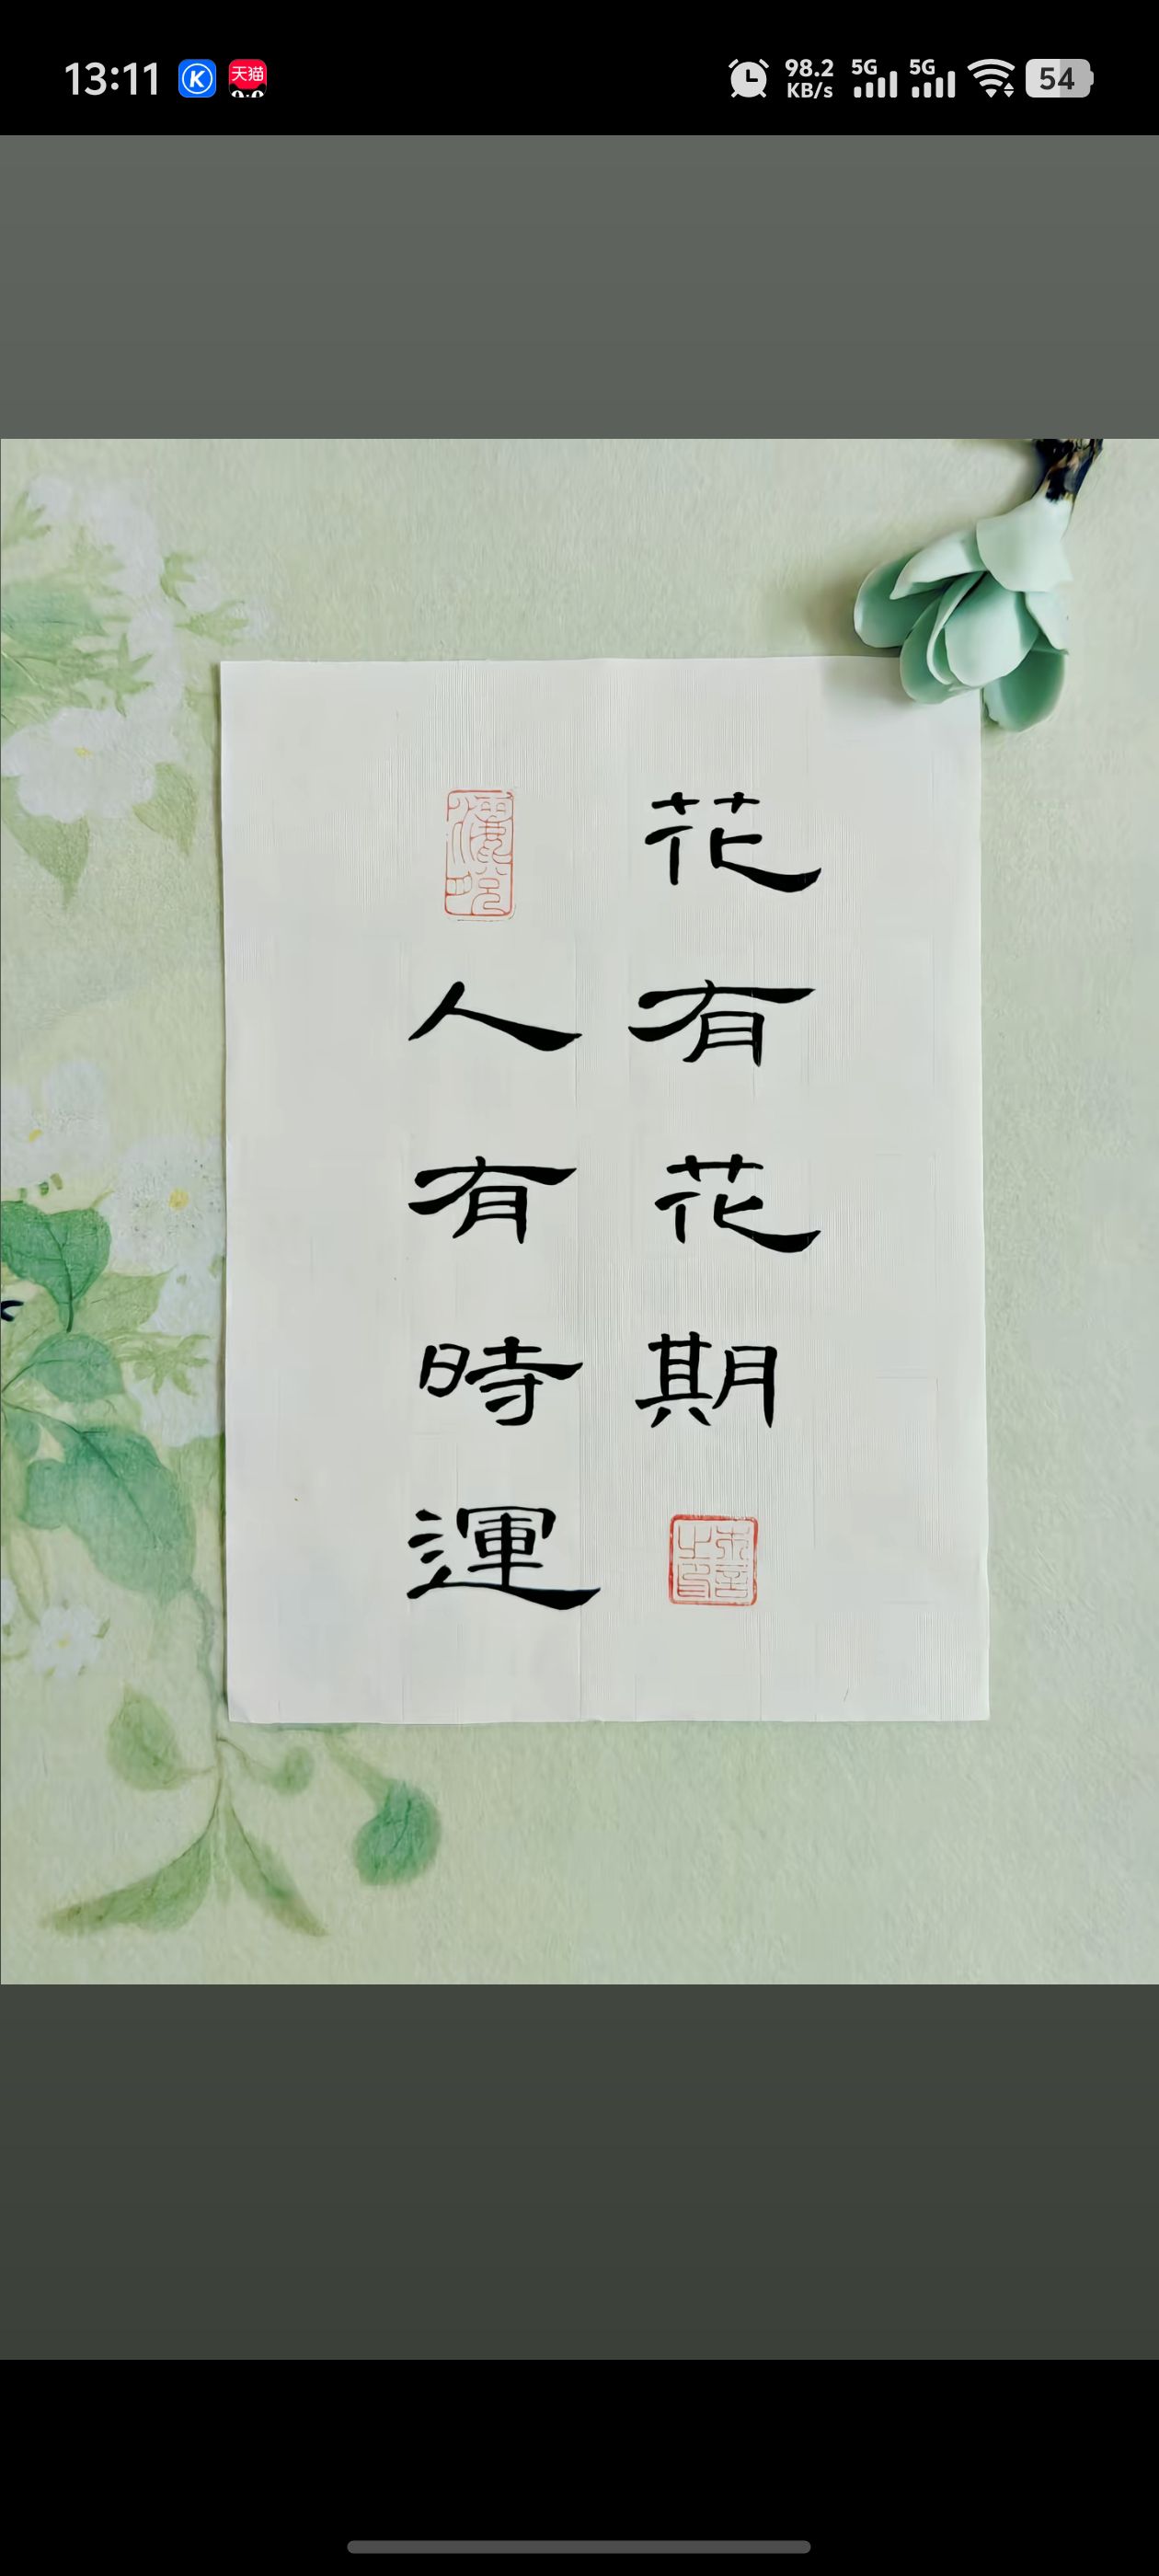 13:11
天猫
98.2
KB/s
5G
5G
54
花有花期
人有時運